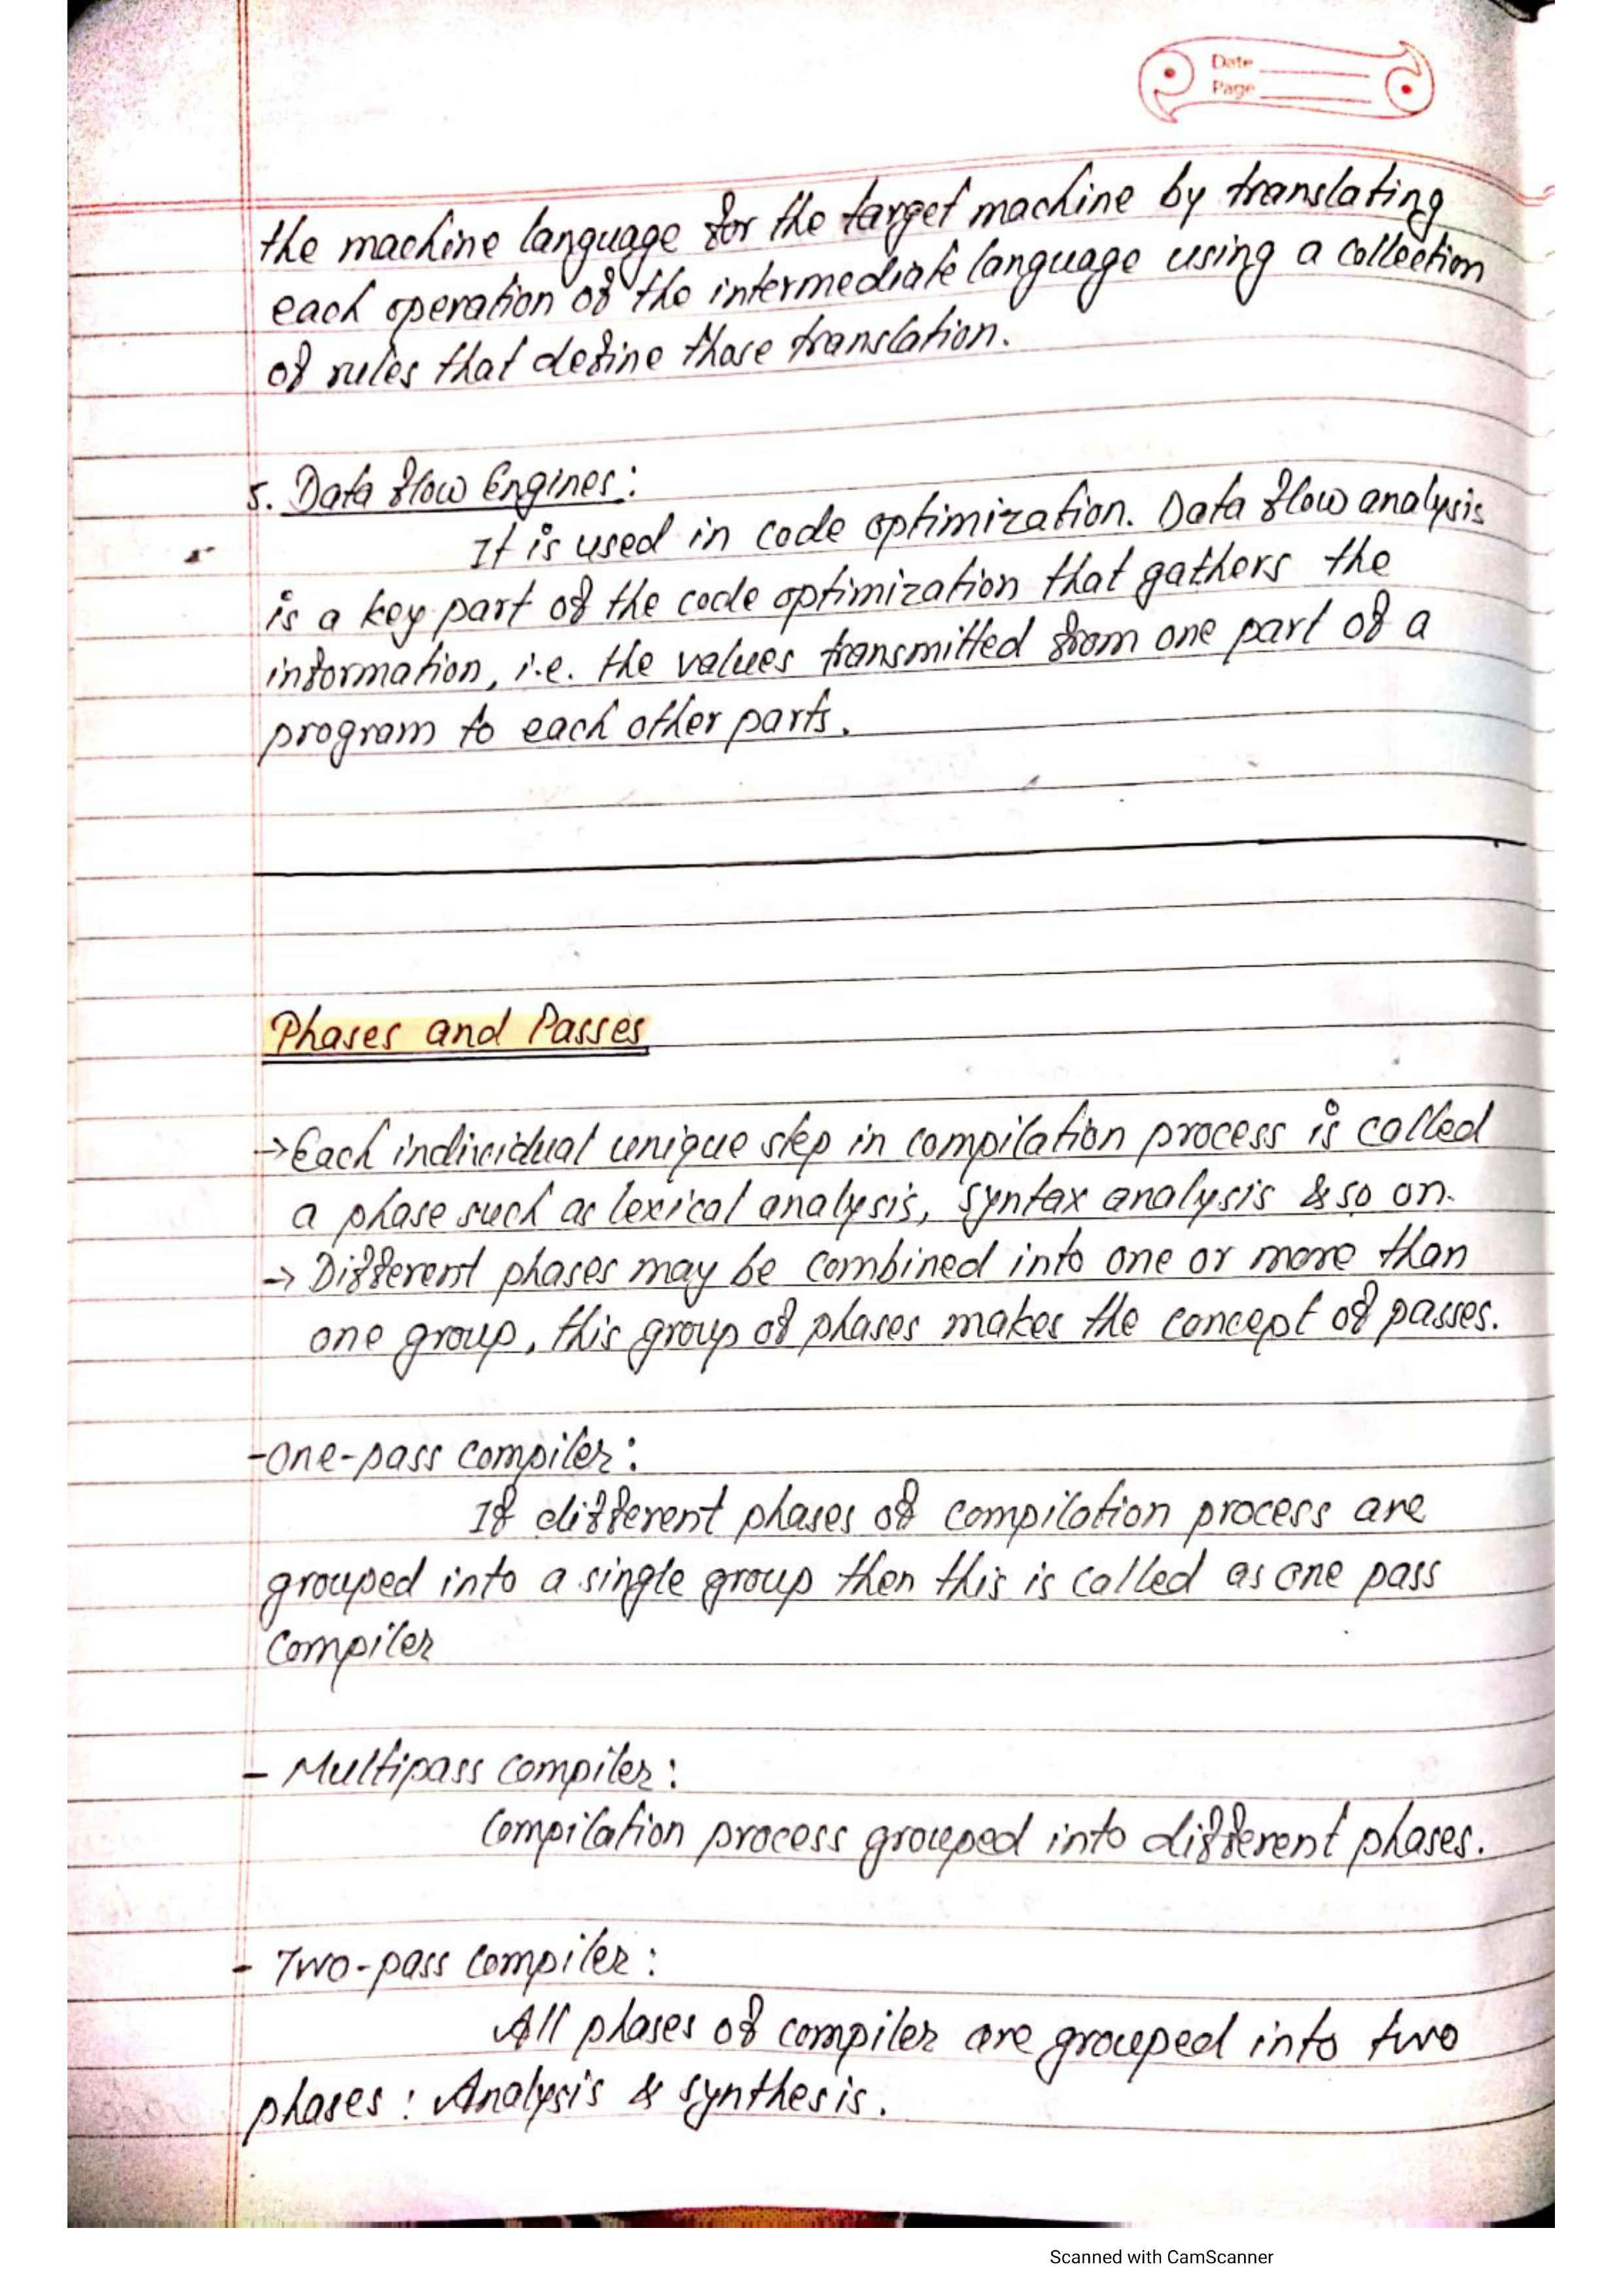 Date
Page
the machine language for the target machine by translating
each operation of the intermediate language using a collection
of rules that define those translation.
5. Data flow Engines:
It is used in code optimization. Data flow analysis
is a key part of the code optimization that gathers the
information, i.e. the values transmitted from one part of a
program to each other parts.
Phases and Passes
→Each individual unique step in compilation process is called
a phase such as lexical analysis, syntax analysis & so on.
→ Different phases may be combined into one or more than
one group, this group of phases makes the concept of passes.
-One-pass compiler:
If different phases of compilation process are
grouped into a single group then this is called as one pass
compiler
- Multipass compiler:
Compilation process grouped into different phases.
- Two-pass compiler:
All phases of compiler are grouped into two
phases: Analysis & synthesis.
Scanned with CamScanner